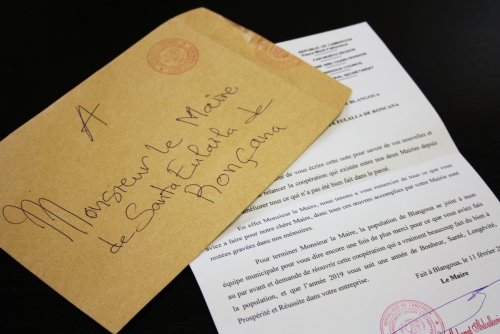 A
Monsieur le Maire
de Santa Eulalla de
Ronçana
REPUBLIC OF CAMEROON
FAR NORTH REGION
BLANGOUA
EULALLA DE RONCANA
de vous écrire cette note pour savoir de vos nouvelles et
relancer la coopération qui existée entre nos deux Mairies depuis
améliorer tous ce qui n'a pas été bien fait dans le passé.
En effet Monsieur le Maire, nous tenons à vous remercier de tous ce que vous
aviez à faire pour notre chère Mairie, donc tous ces œuvres accomplies par votre Mairie sont
restées gravées dans nos mémoires.
Pour terminer Monsieur le Maire, la population de Blangoua se joint à mon
équipe municipale pour vous dire encore une fois de plus merci pour ce que vous aviez fais
au par avant et demande de réouvrir cette coopération qui a vraiment beaucoup fait du bien à
la population, et que l'année 2019 vous soit une année de Bonheur, Santé, Longévité,
Prospérité et Réussite dans votre entreprise.
Fait à Blangoua, le 11 février
Le Maire